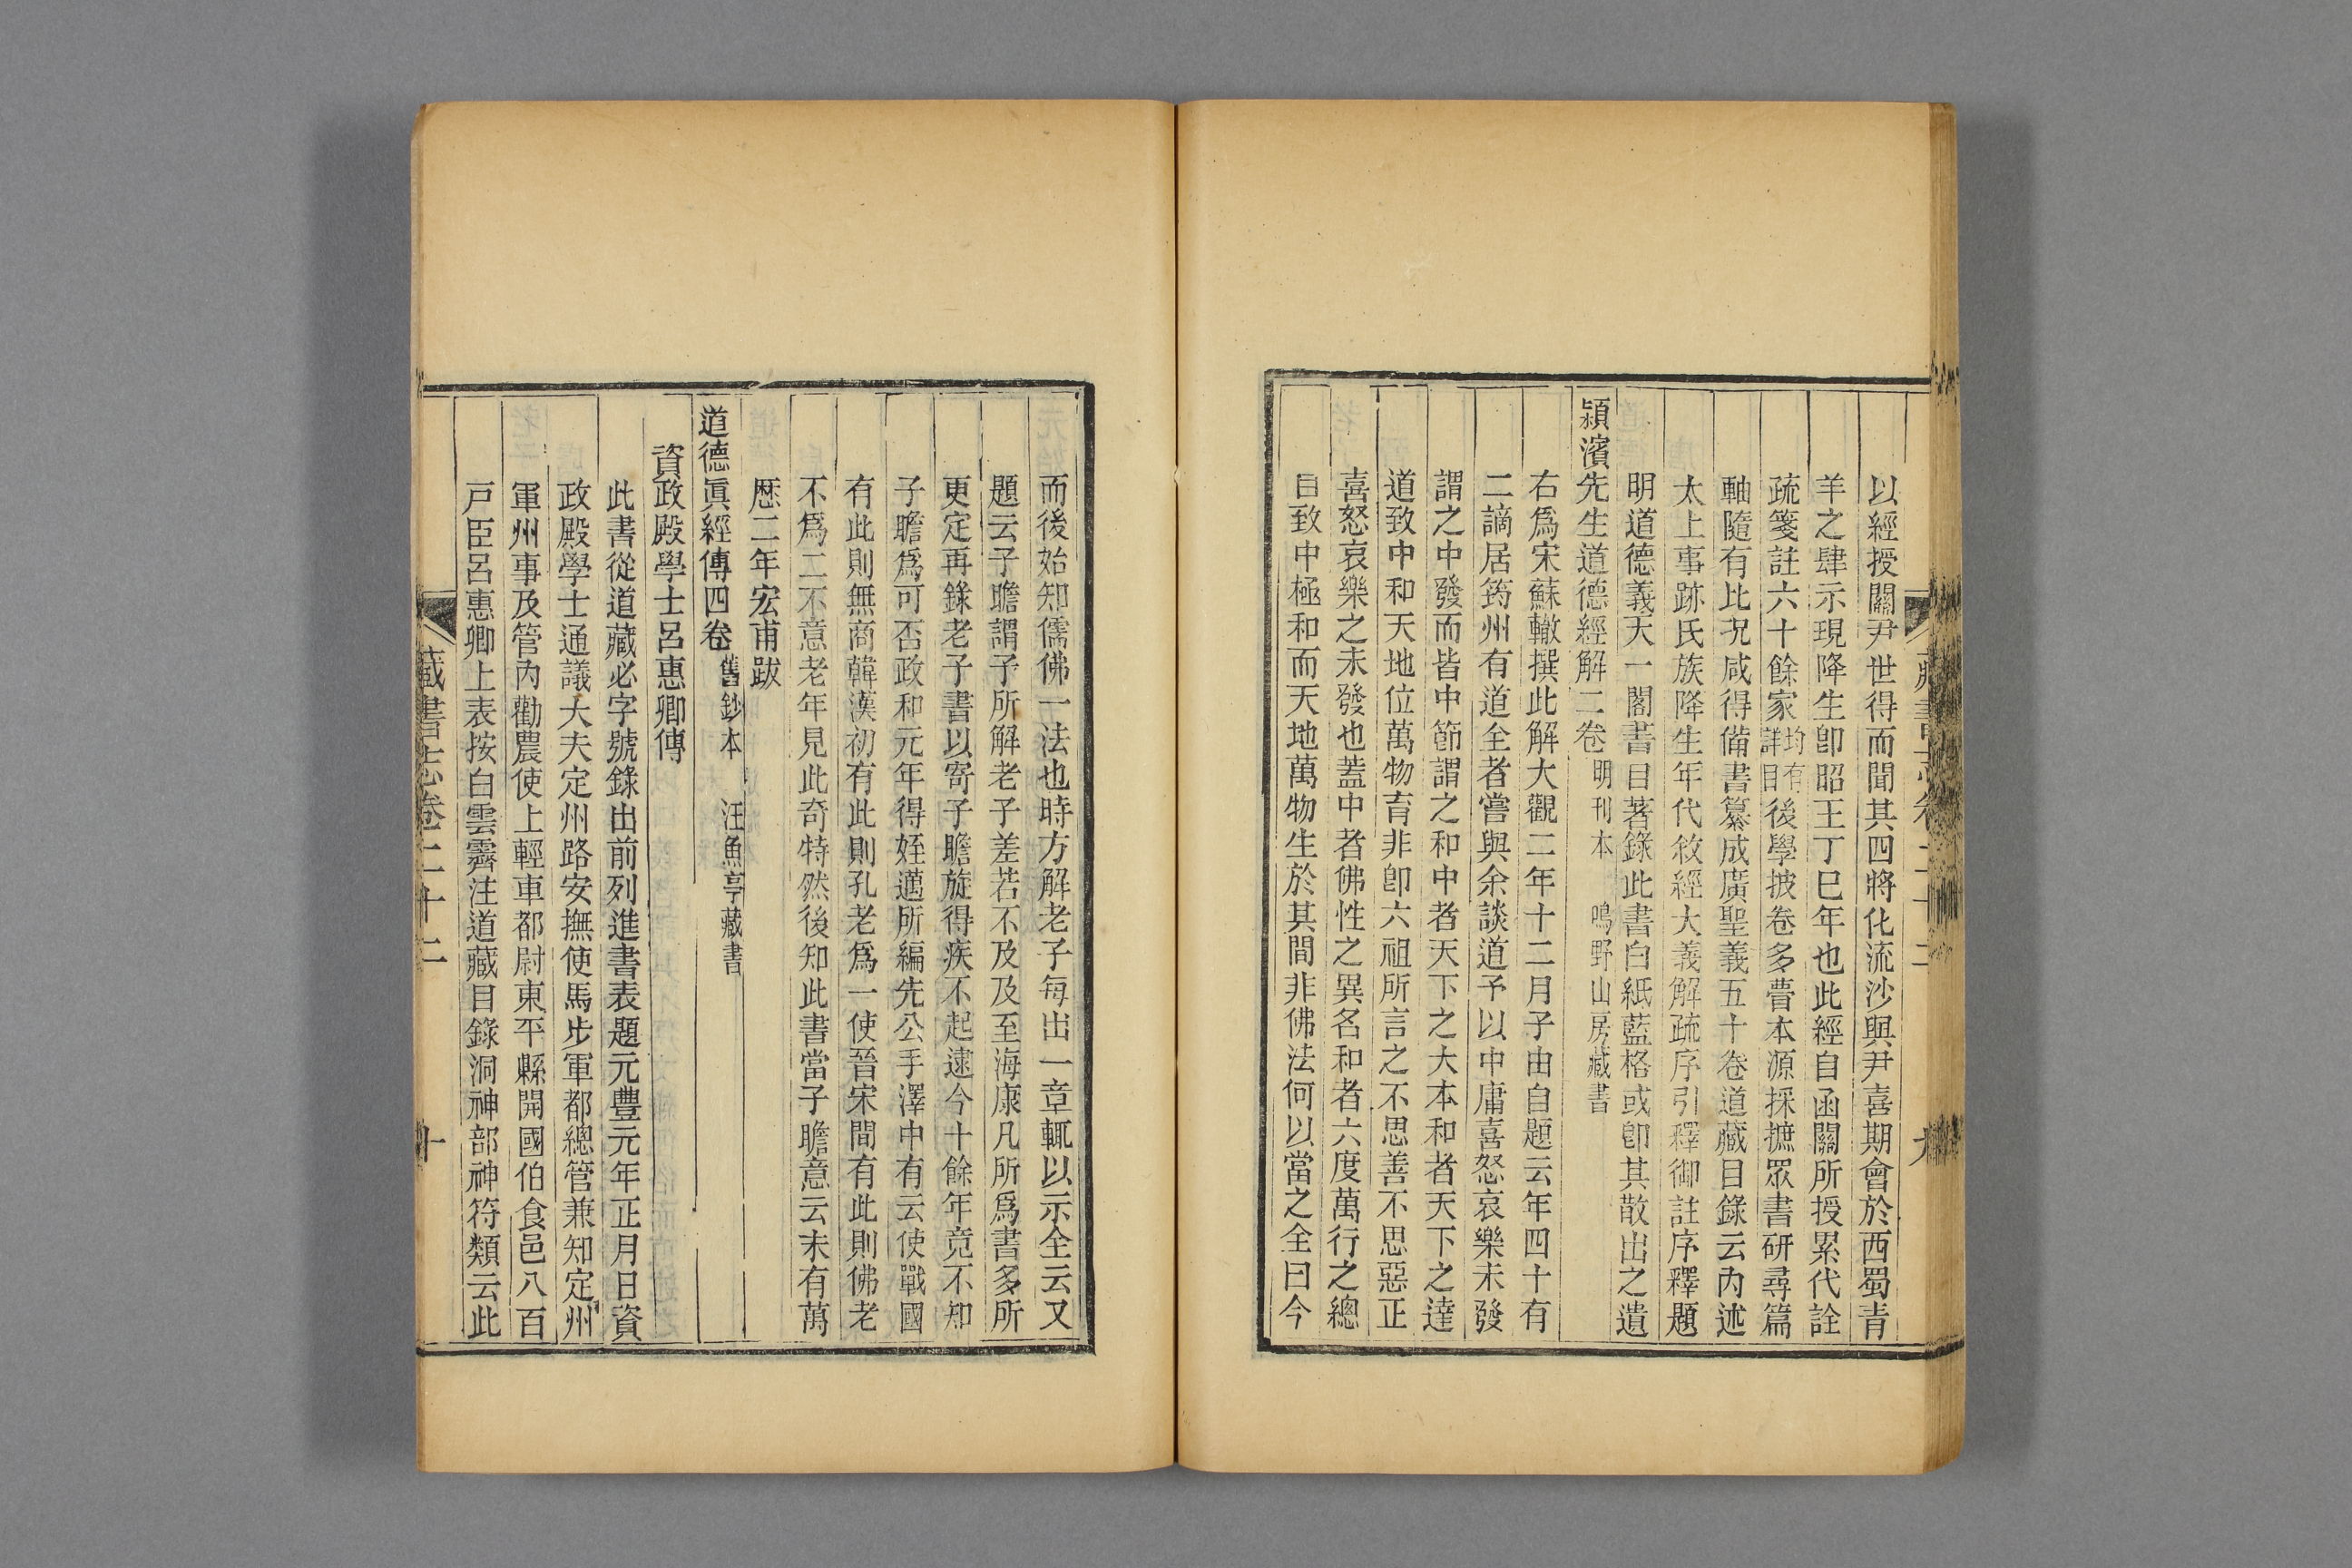 以經授關尹世得而聞其四將化流沙與尹喜期會於西蜀青
羊之肆示現降生卽昭王丁巳年也此經自函關所授累代詮
疏箋註六十餘家均有詳目後學披卷多瞢本源採摭眾書研尋篇
軸隨有比況咸得備書纂成廣聖義五十卷道藏目錄云內述
太上事跡氏族降生年代敘經大義解疏序引釋御註序釋題
明道德義天一閣書目著錄此書白紙藍格或卽其散出之遺
潁濱先生道德經解二卷 明刊本 鳴野山房藏書
右爲宋蘇轍撰此解大觀二年十二月子由自題云年四十有
二謫居筠州有道全者嘗與余談道予以中庸喜怒哀樂未發
謂之中發而皆中節謂之和中者天下之大本和者天下之達
道致中和天地位萬物育非卽六祖所言之不思善不思惡正
喜怒哀樂之未發也蓋中者佛性之異名和者六度萬行之總
目致中極和而天地萬物生於其間非佛法何以當之全曰今
而後始知儒佛一法也時方解老子每出一章輒以示全云又
題云子瞻謂予所解老子差若不及及至海康凡所爲書多所
更定再錄老子書以寄子瞻旋得疾不起逮今十餘年竟不知
子瞻爲可否政和元年得姪邁所編先公手澤中有云使戰國
有此則無商韓漢初有此則孔老爲一使晉宋間有此則佛老
不爲二不意老年見此奇特然後知此書當子瞻意云末有萬
歷二年宏甫跋
道德眞經傳四卷 舊鈔本 汪魚亭藏書
資政殿學士呂惠卿傳
此書從道藏必字號錄出前列進書表題元豐元年正月日資
政殿學士通議大夫定州路安撫使馬步軍都總管兼知定州
軍州事及管內勸農使上輕車都尉東平縣開國伯食邑八百
戸臣呂惠卿上表按白雲霽注道藏目錄洞神部神符類云此
藏書志卷二十二 十